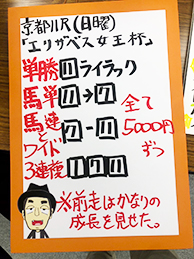 京都11R(日曜)
「エリザベス女王杯」
単勝 11 ライラック
馬単 11→7
馬連 7-11
ワイド
全て
5000円
ずつ
3連複 1 7 11
※前走はかなりの
成長を見せた。